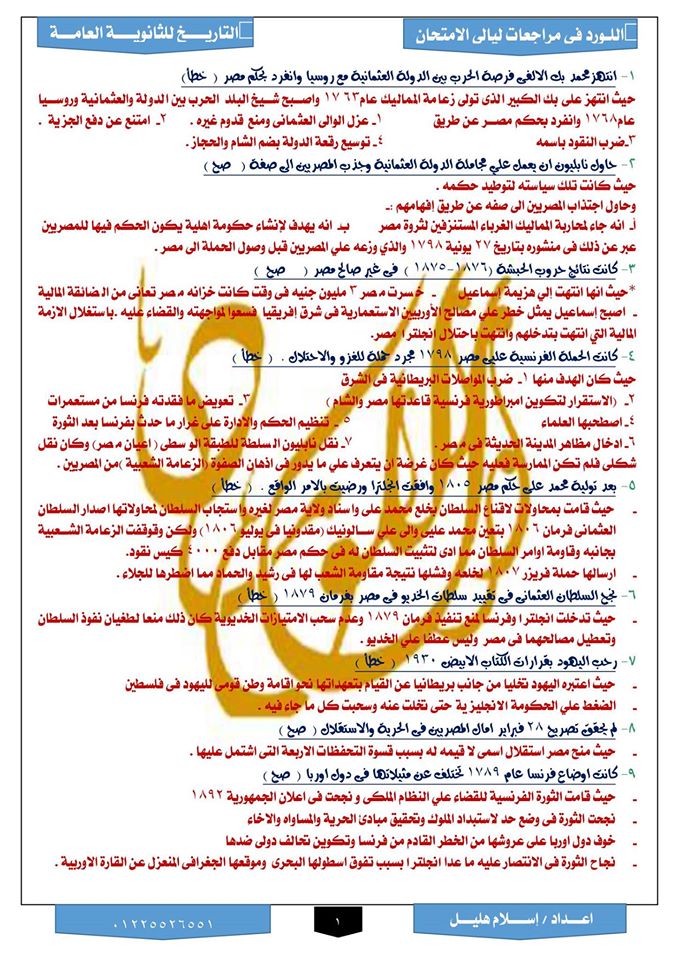 اللورد فى مراجعات ليالى الامتحان
التاريخ للثانوية العامة
١- انتهز محمد بك الالفى فرصة الحرب بين الدولة العثمانية مع روسيا وانفرد بحكم مصر ( خطأ )
حيث انتهز علي بك الكبير الذى تولى زعامة المماليك عام ١٧٦٣ واصبح شيخ البلد الحرب بين الدولة والعثمانية وروسيا
عام ١٧٦٨ وانفرد بحكم مصر عن طريق ١ـ عزل الوالى العثمانى ومنع قدوم غيره . ٢ـ امتنع عن دفع الجزية .
٣ـ ضرب النقود باسمه ٤ـ توسيع رقعة الدولة بضم الشام والحجاز .
٢- حاول نابليون ان يعمل علي مجاملة الدولة العثمانية وجذب المصريين الى صفة ( صح )
حيث كانت تلك سياسته لتوطيد حكمه .
وحاول اجتذاب المصريين الى صفه عن طريق إفهامهم :ـ
أـ انه جاء لمحاربة المماليك الغرباء المستنزفين لثروة مصر ب ـ انه يهدف لإنشاء حكومة اهلية يكون الحكم فيها للمصريين
عبر عن ذلك فى منشوره بتاريخ ٢٧ يونية ١٧٩٨ والذي وزعه علي المصريين قبل وصول الحملة الى مصر .
٣- كانت نتائج حروب الحبشة (١٨٧٦-١٨٧٥ ) فى غير صالح مصر ( صح )
*حيث انها انتهت إلي هزيمة إسماعيل ـ خسرت مصر ٣ مليون جنيه فى وقت كانت خزانه مصر تعانى من الضائقة المالية
ـ اصبح إسماعيل يمثل خطر علي مصالح الأوربيين الاستعمارية فى شرق إفريقيا فسعوا لمواجهته والقضاء عليه .باستغلال الازمة
المالية التي انتهت بتدخلهم وانتهت باحتلال انجلترا مصر.
٤- كانت الحملة الفرنسية علي مصر ١٧٩٨ مجرد حملة للغزو والاحتلال . ( خطأ )
حيث كان الهدف منها ١ـ ضرب المواصلات البريطانية فى الشرق
٢ـ (الاستقرار لتكوين امبراطورية فرنسية قاعدتها مصر والشام ) ٣ـ تعويض ما فقدته فرنسا من مستعمرات
٤ـ اصطحبها العلماء ٥ ـ تنظيم الحكم والادارة على غرار ما حدث بفرنسا بعد الثورة
٦ـ ادخال مظاهر المدينة الحديثة فى مصر . ٧ـ نقل نابليون السلطة للطبقة الوسطي (اعيان مصر) وكان نقل
شكلى فلم تكن الممارسة فعليه حيث كان غرضة ان يتعرف علي ما يدور فى اذهان الصفوة (الزعامة الشعبية )من المصريين .
٥- بعد تولية محمد على حكم مصر ١٨٠٥ وافقت انجلترا ورضيت بالامر الواقع . ( خطأ )
ـ حيث قامت بمحاولات لاقناع السلطان بخلع محمد على واسناد ولاية مصر لغيره واستجاب السلطان لمحاولاتها اصدار السلطان
العثمانى فرمان ١٨٠٦ بتعين محمد عليي والى علي سالونيك (مقدونيا فى يونيو ١٨٠٦) ولكن وقوقفت الزعامة الشعبية
بجانبه وقاومة اوامر السلطان مما ادى لتثبيت السلطان له فى حكم مصر مقابل دفع ٤٠٠٠ كيس نقود.
ـ ارسالها حملة فريزر ١٨٠٧ لخلعه وفشلها نتيجة مقاومة الشعب لها فى رشيد والحماد مما اضطرها للجلاء .
٦- نجح السلطان العثمانى فى تقييد سلطات الخديو فى مصر بفرمان ١٨٧٩ ( خطأ )
ـ حيث تدخلت انجلترا وفرنسا لمنع تنفيذ فرمان ١٨٧٩ وعدم سحب الامتيازات الخديوية كان ذلك منعا لطغيان نفوذ السلطان
وتعطيل مصالحهما فى مصر وليس عطفا علي الخديو .
٧- رحب اليهود بقرارات الكتاب الابيض ١٩٣٠ ( خطأ )
ـ حيث اعتبره اليهود تخليا من جانب بريطانيا عن القيام بتعهداتها نحو اقامة وطن قومى لليهود فى فلسطين
ـ الضغط علي الحكومة الانجليزية حتى تخلت عنه وسحبت كل ما جاء فيه .
٨- لم يحقق تصريح ٢٨ فبراير امال المصريين فى الحرية والاستقلال ( صح )
ـ حيث منح مصر استقلال اسمى لا قيمه له بسبب قسوة التحفظات الاربعة التى اشتمل عليها .
٩- كانت اوضاع فرنسا عام ١٧٨٩ تختلف عن مثيلاتها فى دول اوربا ( صح )
ـ حيث قامت الثورة الفرنسية للقضاء علي النظام الملكى و نجحت فى اعلان الجمهورية ١٨٩٢
ـ نجحت الثورة فى وضع حد لاستبداد الملوك وتحقيق مبادئ الحرية والمساواه والاخاء
ـ خوف دول اوربا على عروشها من الخطر القادم من فرنسا وتكوين تحالف دولى ضدها
ـ نجاح الثورة فى الانتصار عليه ما عدا انجلترا بسبب تفوق اسطولها البحرى وموقعها الجغرافى المنعزل عن القارة الاوربية .
اعداد / إسلام هليل
١
٠١٢٢٥٥٢٦٥٥١